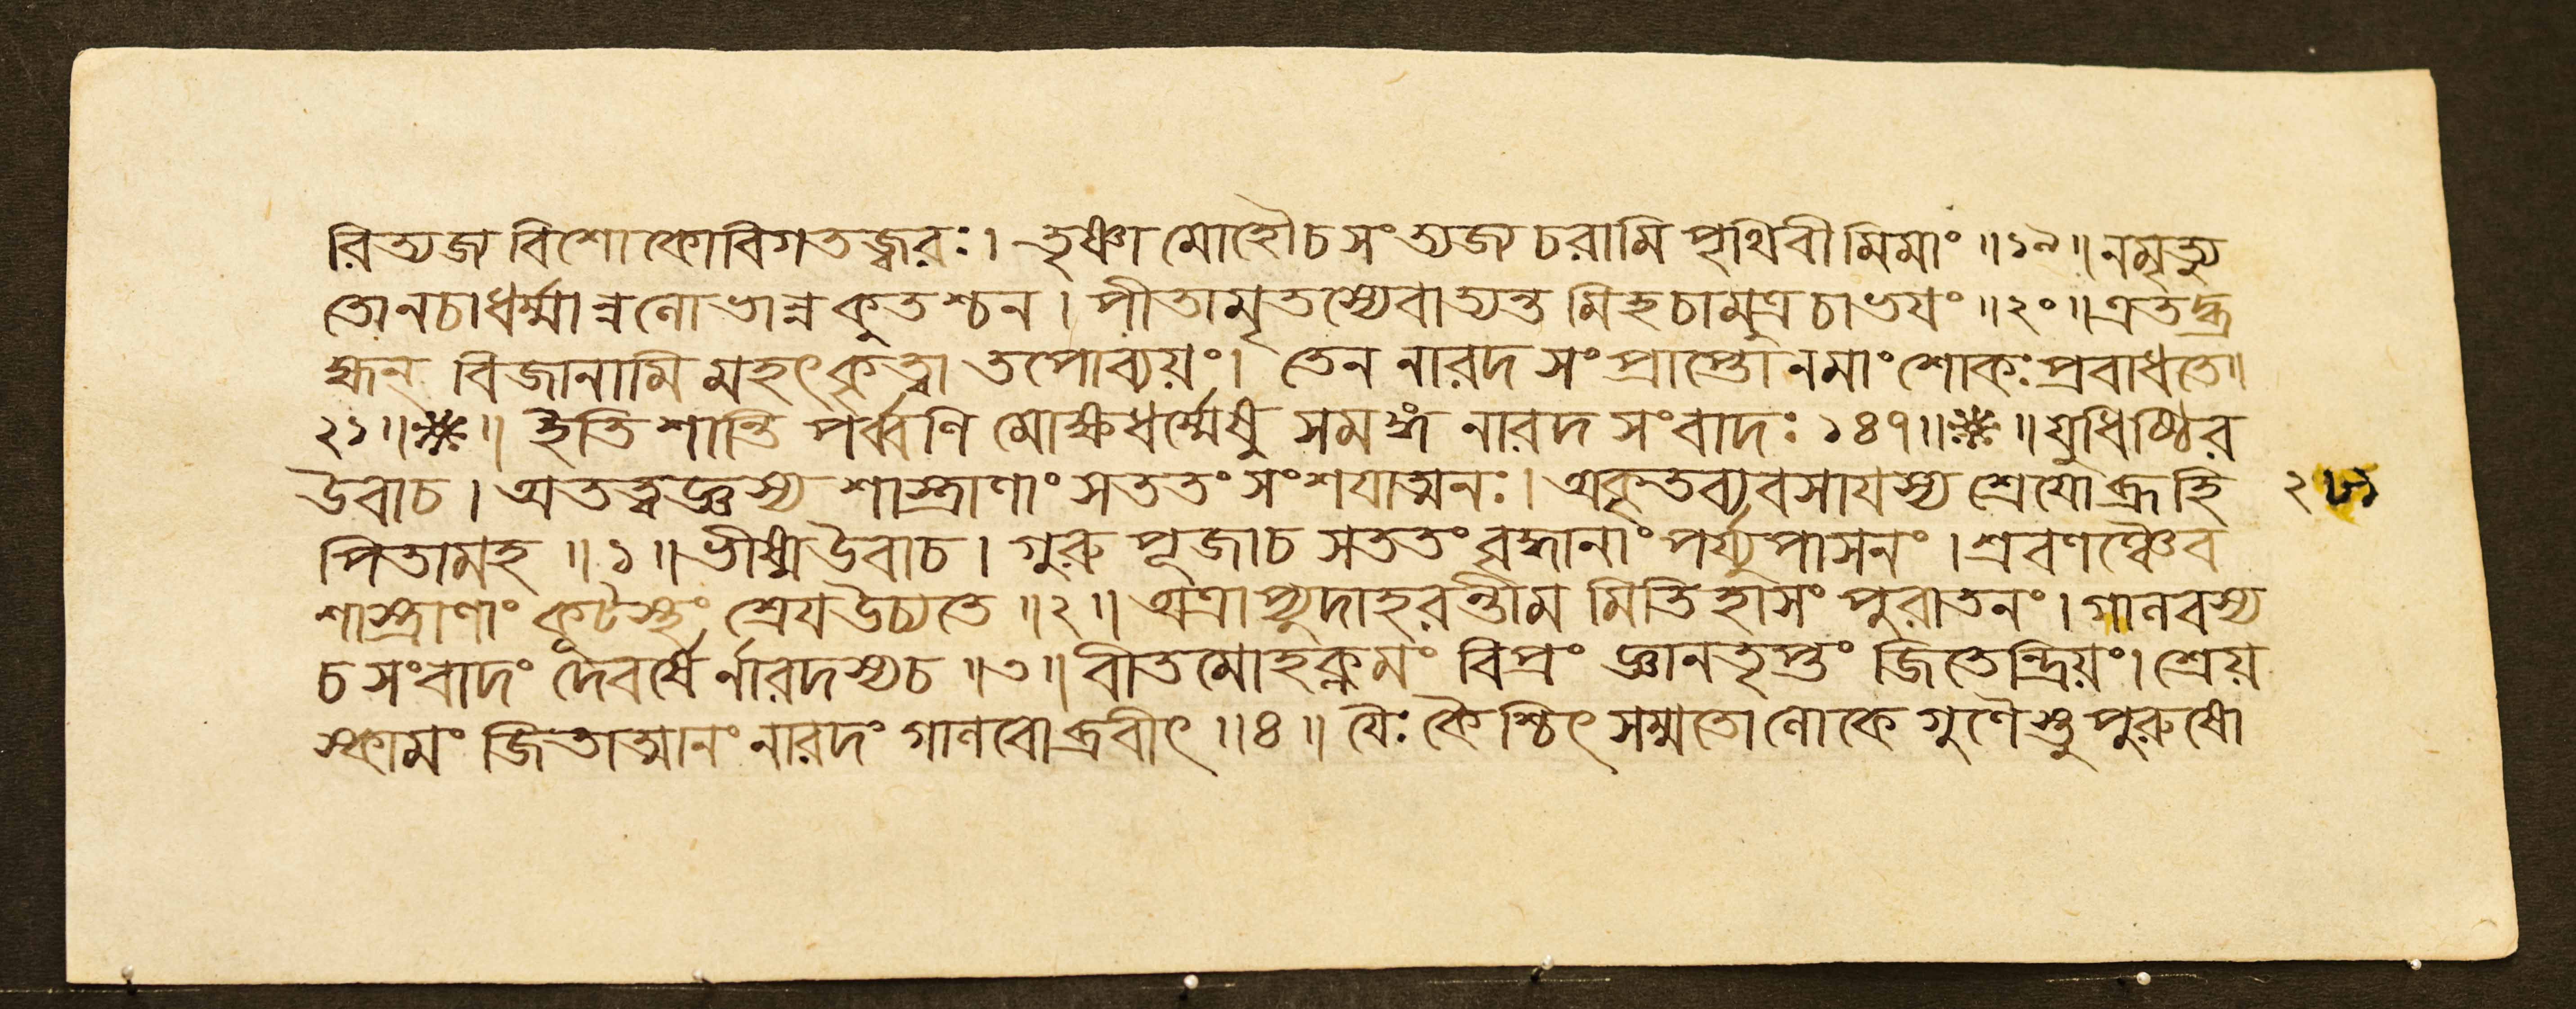 রিত্যজ্য বিশোকোবিগতজ্বরঃ। তৃষ্ণা মোহৌচসংত্যজ্য চরামি পৃথিবীমিমাং ॥১৯॥ নমৃত্যু
তোনচাধর্ম্মান্নলোভান্নকুতশ্চন। পীতামৃতস্যেবাত্যন্তমিহচামুত্রচাভযং ॥২০॥ এতদ্ব্র
হ্মন্ বিজানামি মহৎকৃত্বা তপোব্যয়ং। তেন নারদ সংপ্রাপ্তোনমাংশোকঃপ্রবাধতে॥
২১॥※॥ ইতি শান্তি পর্ব্বণি মোক্ষধর্ম্মেষু সমঙ্গ নারদ সংবাদঃ ১৪৭॥※॥ যুধিষ্ঠির
উবাচ। অতত্বজ্ঞস্য শাস্ত্রাণাং সততং সংশযাত্মনঃ। অকৃতব্যবসাযস্য শ্রেযোব্রূহি
পিতামহ ॥১॥ ভীষ্মউবাচ। গুরু পূজাচ সততং বৃদ্ধানাং পর্য্যুপাসনং। শ্রবণঞ্চৈব
শাস্ত্রাণাং কূটস্থং শ্রেযউচ্যতে ॥২॥ অত্রাপ্যুদাহরন্তীম মিতিহাসং পুরাতনং। গালবস্য
চ সংবাদং দেবর্ষের্নারদস্যচ ॥৩॥ বীতমোহক্লমং বিপ্রং জ্ঞানতৃপ্তং জিতেন্দ্রিয়ং। শ্রেয়
স্কামং জিতাত্মানং নারদং গালবোব্রবীৎ ॥৪॥ যৈঃ কৈশ্চিৎ সম্মতোলোকে গুণৈস্তু পুরুষো